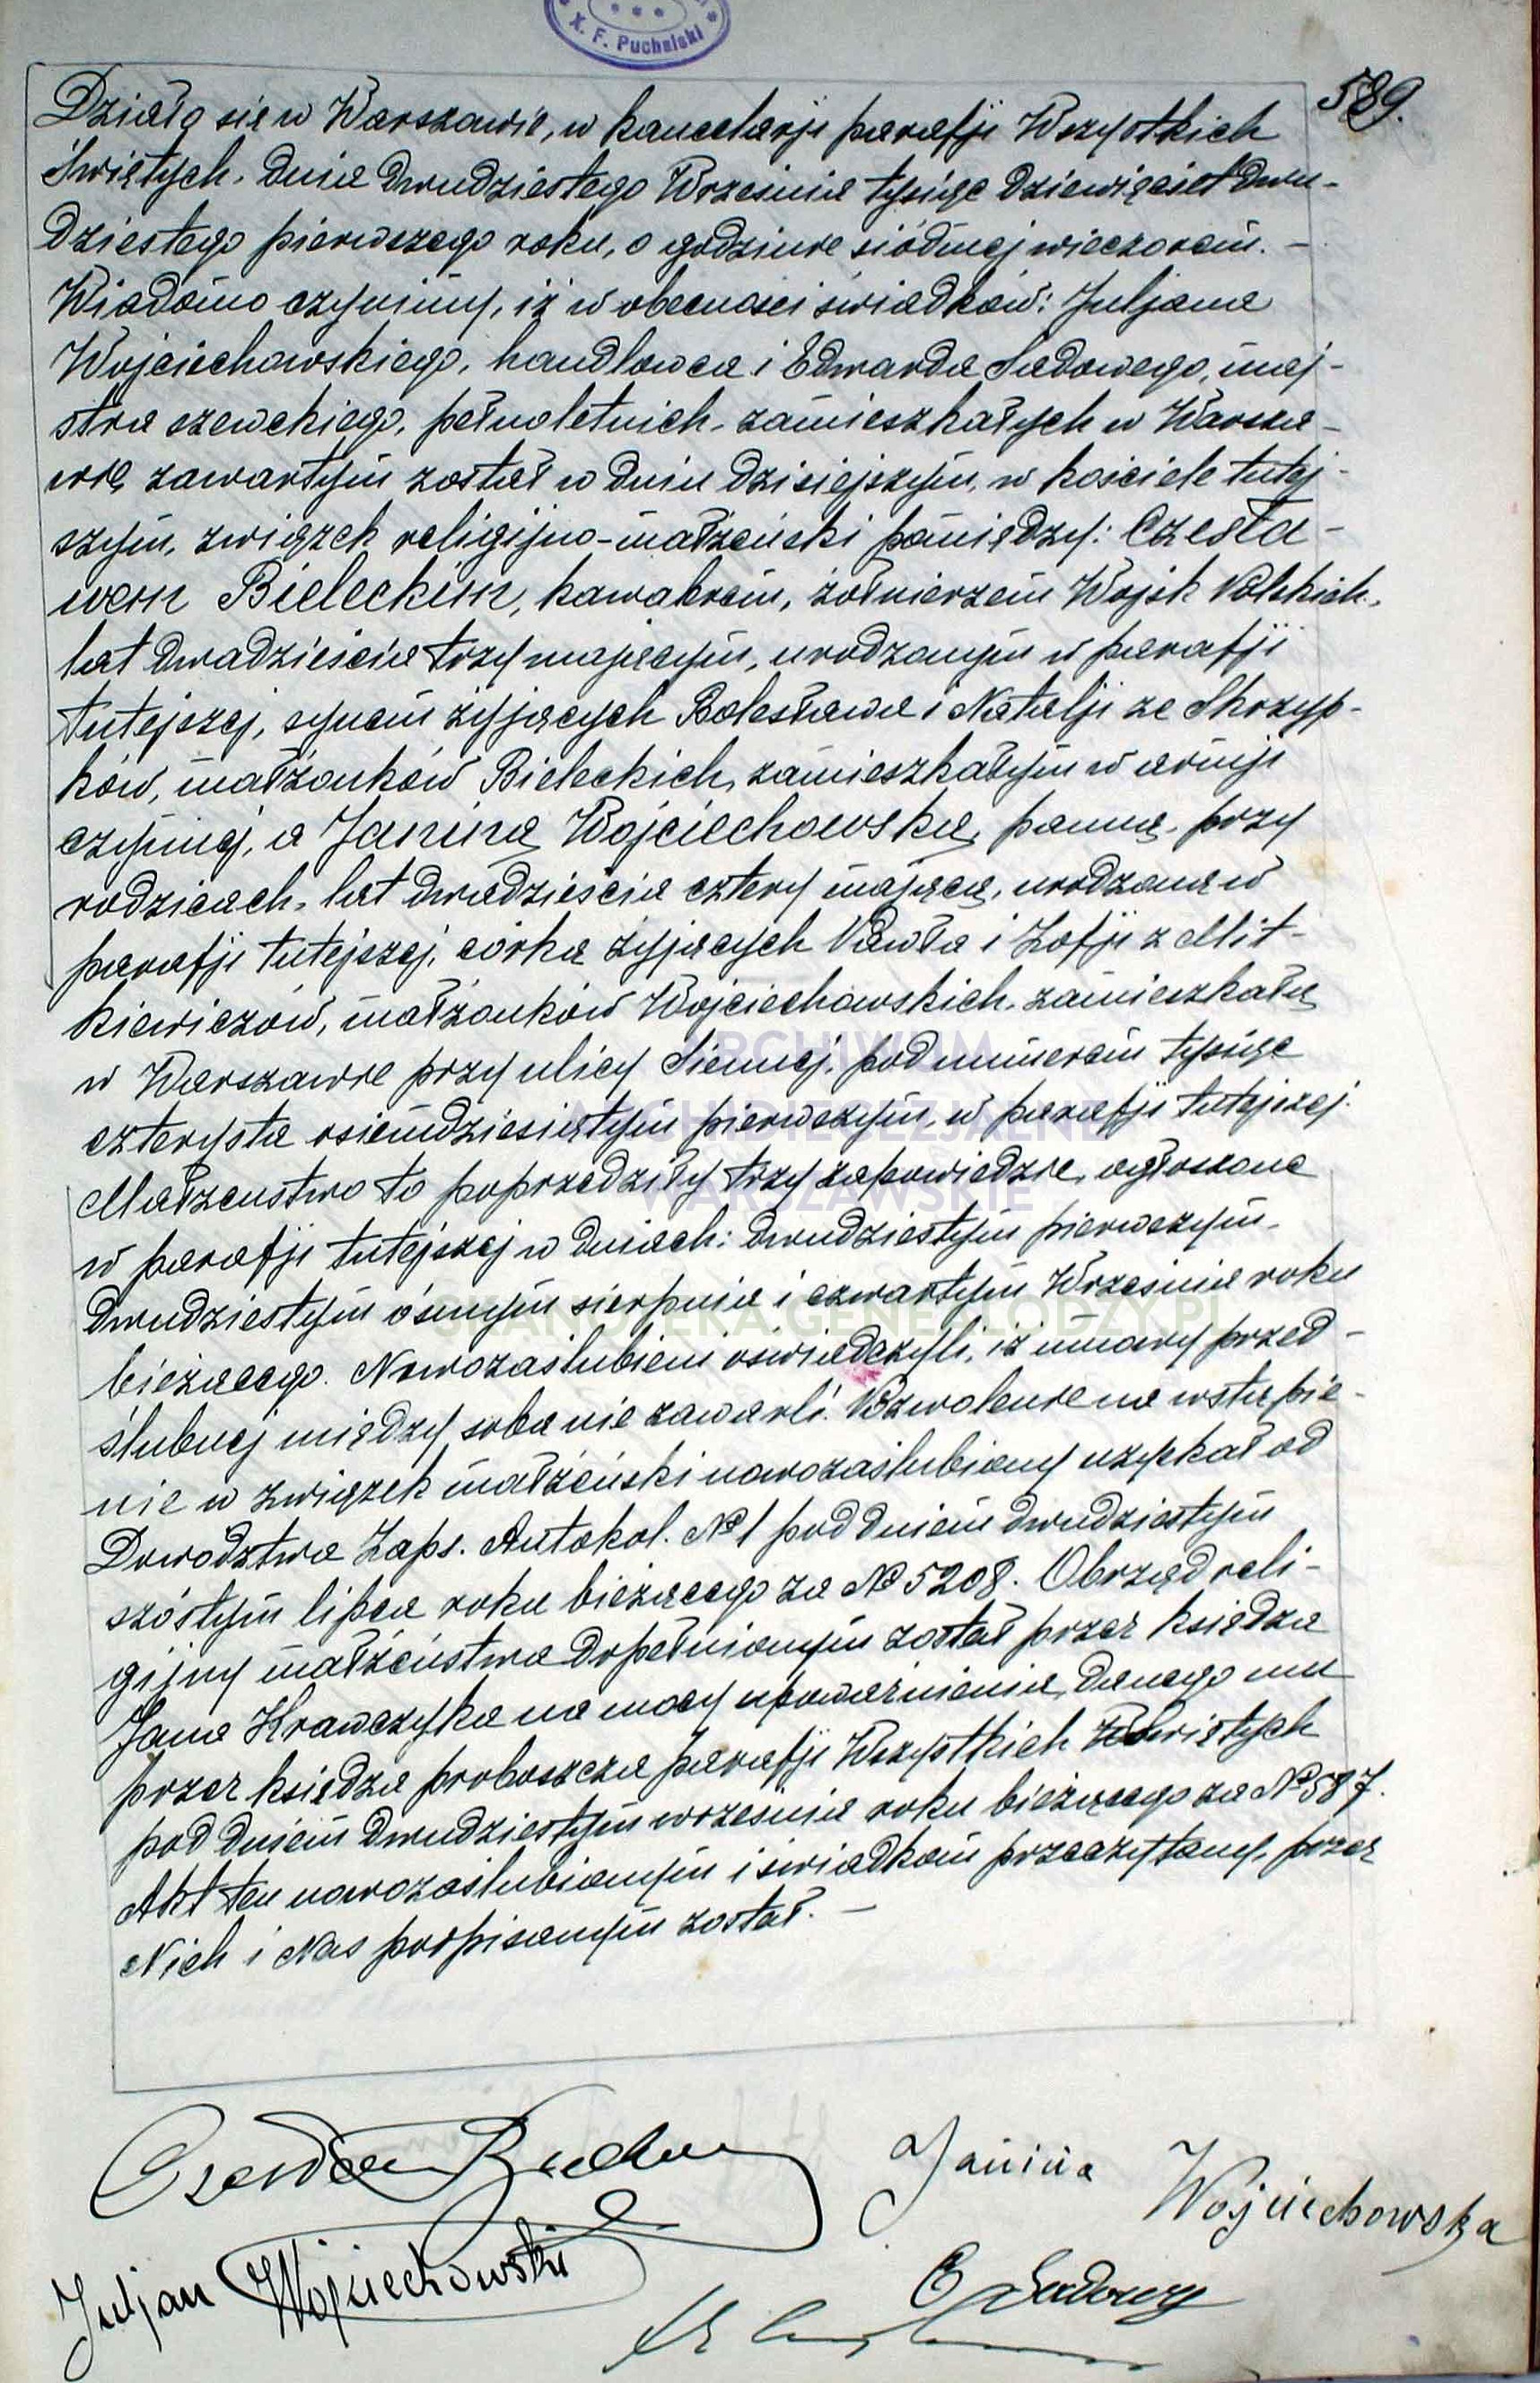 X. F. Puchalski
589.
Działo się w Warszawie, w kancelarji parafji Wszystkich
Świętych, dnia dwudziestego Września tysiąc dziewięćset dwu-
dziestego pierwszego roku, o godzinie siódmej wieczorem. —
Wiadomo czynimy, iż w obecności świadków: Juljana
Wojciechowskiego, handlowca i Edwarda Sadowego, maj-
stra szewckiego, pełnoletnich, zamieszkałych w Warsza-
wie zawartym został w dniu dzisiejszym, w kościele tutej-
szym, związek religijno-małżeński pomiędzy: Czesła-
wem Bieleckim, kawalerem, żołnierzem Wojsk Polskich,
lat dwadzieścia trzy mającym, urodzonym w parafji
tutejszej, synem żyjących Bolesława i Natalji ze Skrzyp-
ków, małżonków Bieleckich, zamieszkałym w armji
czynnej, a Janiną Wojciechowską, panną, przy
rodzicach, lat dwadzieścia cztery mającą, urodzoną w
parafji tutejszej, córką żyjących Pawła i Zofji z Mit-
kiewiczów, małżonków Wojciechowskich, zamieszkałą
w Warszawie przy ulicy Siennej, pod numerem tysiąc
czterysta osiemdziesiątym pierwszym, w parafji tutejszej.
Małżeństwo to poprzedziły trzy zapowiedzie, ogłoszone
w parafji tutejszej w dniach: dwudziestym pierwszym,
dwudziestym ósmym sierpnia i czwartym Września roku
bieżącego. Nowozaślubieni oświadczyli, iż umowy przed-
ślubnej między sobą nie zawarli. Pozwolenie na wstąpie-
nie w związek małżeński nowozaślubiony uzyskał od
Dowództwa Zaps. Autokol. № 1 pod dniem dwudziestym
szóstym lipca roku bieżącego za № 5208. Obrząd reli-
gijny małżeństwa dopełnionym został przez księdza
Jana Krawczyka na mocy upoważnienia, danego mu
przez księdza proboszcza parafji Wszystkich Świętych
pod dniem dwudziestym września roku bieżącego za № 587.
Akt ten nowozaślubionym i świadkom przeczytany, przez
Nich i Nas podpisanym został. —
ARCHIWUM
ARCHIDIECEZJALNE
WARSZAWSKIE
SKANOTEKA.GENEALODZY.PL
Janina Wojciechowska
Juljan Wojciechowski
E Sadowy